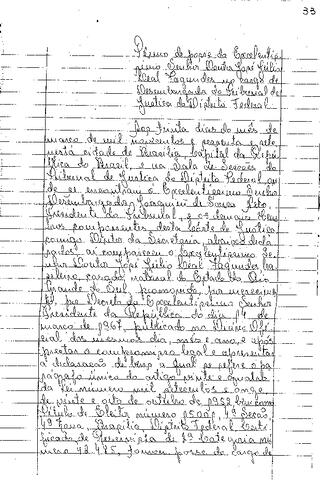 33
Termo de posse do Excelentís-
simo Senhor Doutor José Júlio
Leal Fagundes no cargo de
Desembargador do Tribunal de
Justiça do Distrito Federal
Aos trinta dias do mês de
março de mil novecentos e sessenta e sete
nesta cidade de Brasília, Capital da Repú-
blica do Brasil, na Sala de Sessões do
Tribunal de Justiça do Distrito Federal on-
de se encontravam o Excelentíssimo Senhor
Desembargador Joaquim de Sousa Neto
Presidente do Tribunal, e os demais
componentes desta Corte de Justiça
comigo Diretor da Secretaria, abaixo decla-
rado, aí compareceu o Excelentíssimo Se-
nhor Doutor José Júlio Leal Fagundes, bra-
sileiro, casado, natural do Estado do Rio
Grande do Sul, promovido, por
por Decreto do Excelentíssimo Senhor
Presidente da República do dia 14 de
março de 1967, publicado no Diário Ofi-
cial dos mesmos dia, mês e ano, e após
prestar o compromisso legal e apresentar
a declaração de bens a qual se refere o pa-
rágrafo único do artigo vinte e quatro da
Lei número mil setecentos e onze
de vinte e oito de outubro de 1952, bem como
Título de Eleitor número 15001, 4ª Seção
4ª Zona, Brasília, Distrito Federal, Certi-
ficado de Reservista de 3ª Categoria nú-
mero 42.485, tomou posse do cargo de